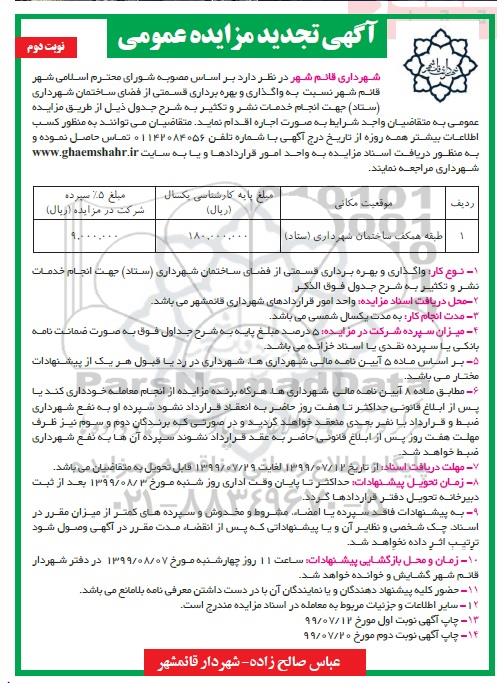 آگهی تجدید مزایده عمومی
نوبت دوم
شهرداری قائم شهر
شهرداری قائم شهر در نظر دارد بر اساس مصوبه شورای محترم اسلامی شهر
قائم شهر نسبت به واگذاری و بهره برداری قسمتی از فضای ساختمان شهرداری
(ستاد) جهت انجام خدمات نشر و تکثیر به شرح جدول ذیل از طریق مزایده
عمومی به متقاضیان واجد شرایط به صورت اجاره اقدام نماید. متقاضیان می توانند به منظور کسب
اطلاعات بیشتر همه روزه از تاریخ درج آگهی با شماره تلفن ۰۱۱۴۲۰۸۴۰۵۶ تماس حاصل نموده و
به منظور دریافت اسناد مزایده به واحد امور قراردادها و یا به سایت www.ghaemshahr.ir
شهرداری مراجعه نمایند.
ردیف موقعیت مکانی مبلغ پایه کارشناسی یکسال (ریال) مبلغ ۵٪ سپرده شرکت در مزایده (ریال)
۱ طبقه همکف ساختمان شهرداری (ستاد) ۱۸۰,۰۰۰,۰۰۰ ۹,۰۰۰,۰۰۰
۱- نوع کار: واگذاری و بهره برداری قسمتی از فضای ساختمان شهرداری (ستاد) جهت انجام خدمات
نشر و تکثیر به شرح جدول فوق الذکر
۲-محل دریافت اسناد مزایده: واحد امور قراردادهای شهرداری قائمشهر می باشد.
۳- مدت انجام کار: به مدت یکسال شمسی می باشد.
۴- میزان سپرده شرکت در مزایده: ۵ درصد مبلغ پایه به شرح جداول فوق به صورت ضمانت نامه
بانکی یا سپرده نقدی یا اسناد خزانه می باشد.
۵- بر اساس ماده ۵ آیین نامه مالی شهرداری ها، شهرداری در رد یا قبول هر یک از پیشنهادات
مختار می باشد.
۶- مطابق ماده ۸ آیین نامه مالی شهرداری ها، هرگاه برنده مزایده از انجام معامله خودداری کند یا
پس از ابلاغ قانونی حداکثر تا هفت روز حاضر به انعقاد قرارداد نشود سپرده او به نفع شهرداری
ضبط و قرارداد با نفر بعدی منعقد خواهد گردید و در صورتی که برندگان دوم و سوم نیز ظرف
مهلت هفت روز پس از ابلاغ قانونی حاضر به عقد قرارداد نشوند سپرده آن ها به نفع شهرداری
ضبط خواهد شد.
۷- مهلت دریافت اسناد: از تاریخ ۱۳۹۹/۰۷/۱۲ لغایت ۱۳۹۹/۰۷/۲۹ قابل تحویل به متقاضیان می باشد.
۸- زمان تحویل پیشنهادات: حداکثر تا پایان وقت اداری روز شنبه مورخ ۱۳۹۹/۰۸/۰۳ بعد از ثبت
دبیرخانه تحویل دفتر قراردادها گردد.
۹- به پیشنهادات فاقد سپرده یا امضاء، مشروط و مخدوش و سپرده های کمتر از میزان مقرر در
اسناد، چک شخصی و نظایر آن و یا پیشنهاداتی که پس از انقضاء مدت مقرر در آگهی وصول شود
ترتیب اثر داده نخواهد شد.
۱۰- زمان و محل بازگشایی پیشنهادات: ساعت ۱۱ روز چهارشنبه مورخ ۱۳۹۹/۰۸/۰۷ در دفتر شهردار
قائم شهر گشایش و خوانده خواهد شد.
۱۱- حضور کلیه پیشنهاد دهندگان و یا نمایندگان آن با در دست داشتن معرفی نامه بلامانع می باشد.
۱۲- سایر اطلاعات و جزئیات مربوط به معامله در اسناد مزایده مندرج است.
۱۳- چاپ آگهی نوبت اول مورخ ۹۹/۰۷/۱۲
۱۴- چاپ آگهی نوبت دوم مورخ ۹۹/۰۷/۲۰
عباس صالح زاده- شهردار قائمشهر
ParsNamadData